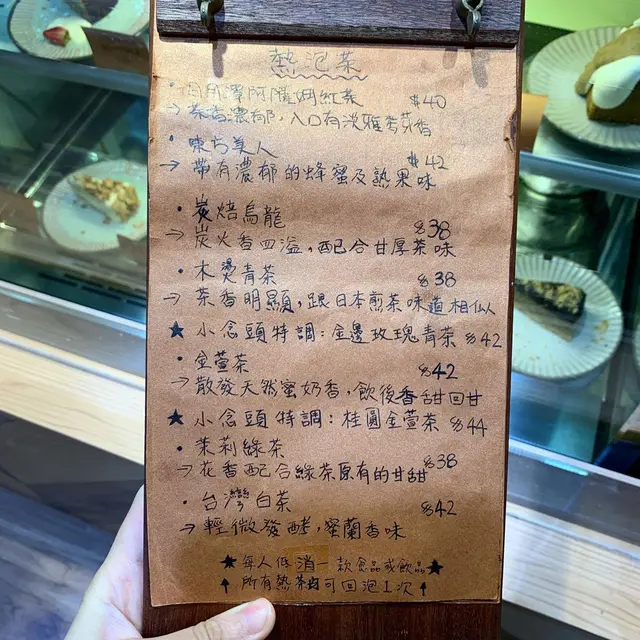 熱泡茶
· 日月潭阿薩姆紅茶 $40
→ 茶香濃郁，入口有淡雅麥芽香
· 東方美人 $42
→ 帶有濃郁的蜂蜜及熟果味
· 炭焙烏龍 $38
→ 炭火香四溢，配合甘厚茶味
· 木燙青茶 $38
→ 茶香明顯，跟日本煎茶味道相似
★ 小念頭特調：金邊玫瑰青茶 $42
· 金萱茶 $42
→ 散發天然蜜奶香，飲後香甜回甘
★ 小念頭特調：桂圓金萱茶 $44
· 茉莉綠茶 $38
→ 花香配合綠茶原有的甘甜
· 台灣白茶 $42
→ 輕微發酵，蜜蘭香味
★ 每人低消一款食品或飲品 ★
↑ 所有熱茶均可回泡1次 ↑